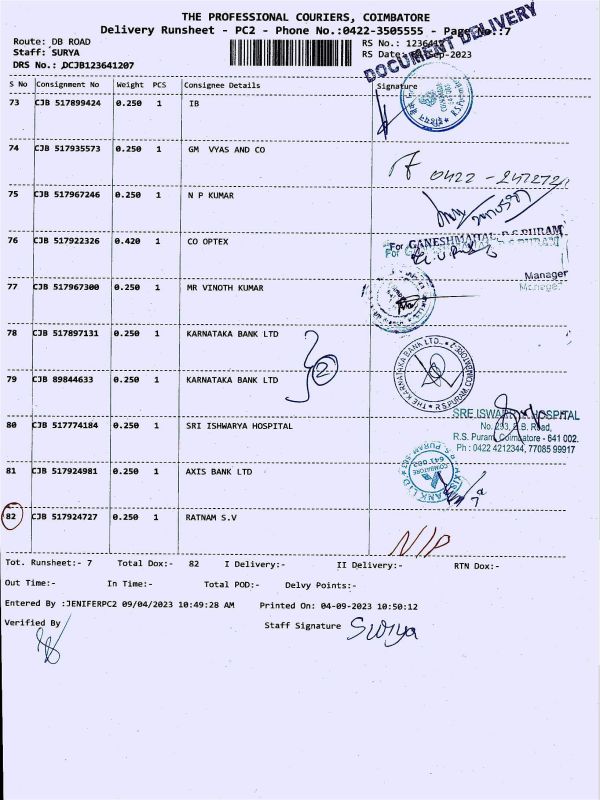 THE PROFESSIONAL COURIERS, COIMBATORE
Delivery Runsheet - PC2 - Phone No.:0422-3505555 - Page No.:7
DOCUMENT DELIVERY
Route: DB ROAD
Staff: SURYA
DRS No.: DCJB123641207
RS No.: 12364
RS Date: Sep-2023
S No Consignment No Weight PCS Consignee Details Signature
73 CJB 517899424 0.250 1 IB
74 CJB 517935573 0.250 1 GM VYAS AND CO
0422 - 2472721
75 CJB 517967246 0.250 1 N P KUMAR
76 CJB 517922326 0.420 1 CO OPTEX
For GANESHMAHAL, R.S.PURAM
Manager
77 CJB 517967300 0.250 1 MR VINOTH KUMAR
78 CJB 517897131 0.250 1 KARNATAKA BANK LTD
2
79 CJB 89844633 0.250 1 KARNATAKA BANK LTD
THE KARNATAKA BANK LTD. R.S PURAM, COIMBATORE-2
80 CJB 517774184 0.250 1 SRI ISHWARYA HOSPITAL
SRE ISWARYA HOSPITAL
No. 293, D.B. Road,
R.S. Puram, Coimbatore - 641 002.
Ph : 0422 4212344, 77085 99917
81 CJB 517924981 0.250 1 AXIS BANK LTD
AXIS BANK LTD. R.S. PURAM
COIMBATORE
82 CJB 517924727 0.250 1 RATNAM S.V
N/P
Tot. Runsheet:- 7 Total Dox:- 82 I Delivery:- II Delivery:- RTN Dox:-
Out Time:- In Time:- Total POD:- Delvy Points:-
Entered By :JENIFERPC2 09/04/2023 10:49:28 AM Printed On: 04-09-2023 10:50:12
Verified By Staff Signature Surya